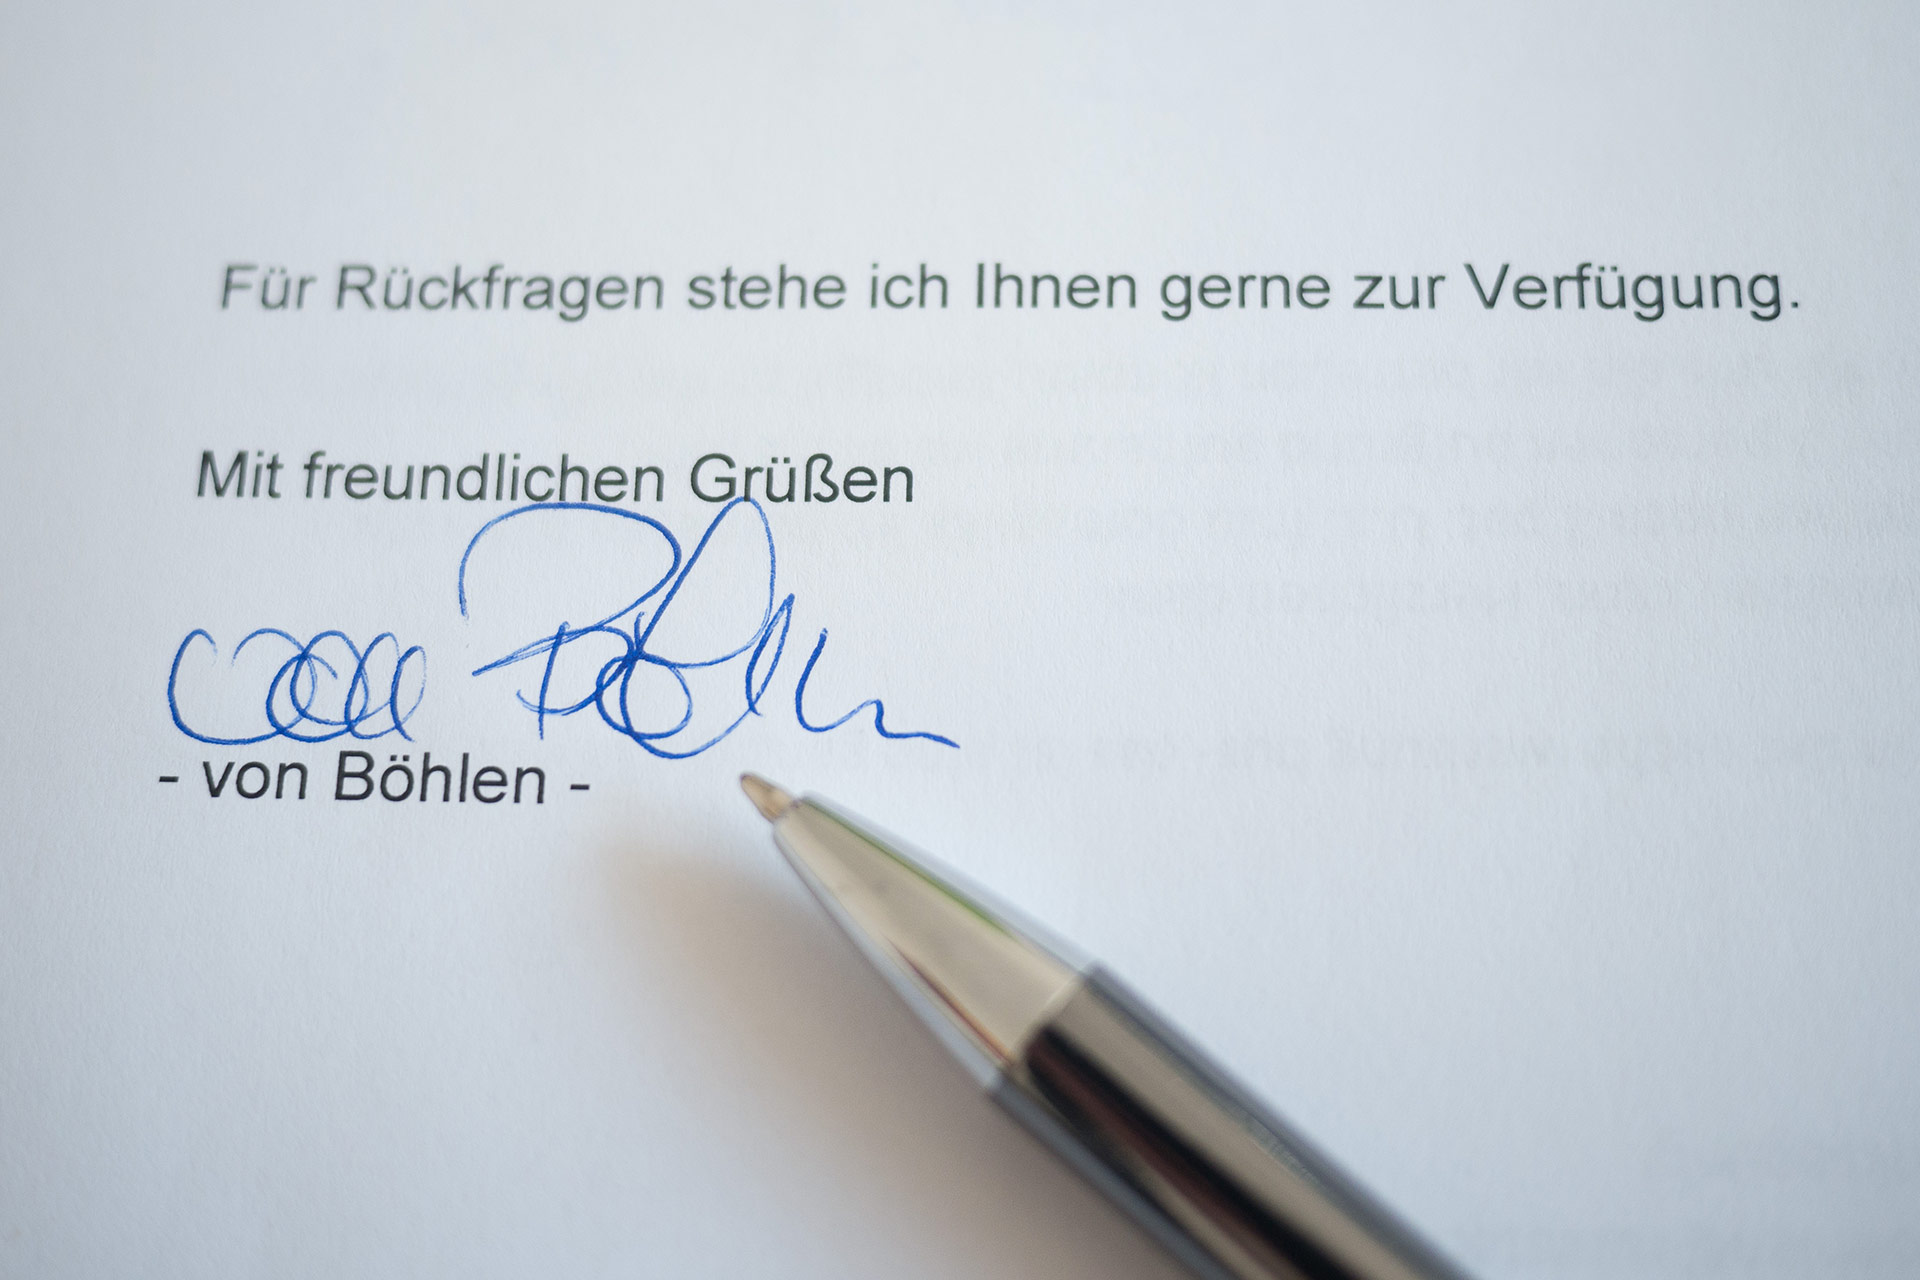 Für Rückfragen stehe ich Ihnen gerne zur Verfügung.
Mit freundlichen Grüßen
- von Böhlen -